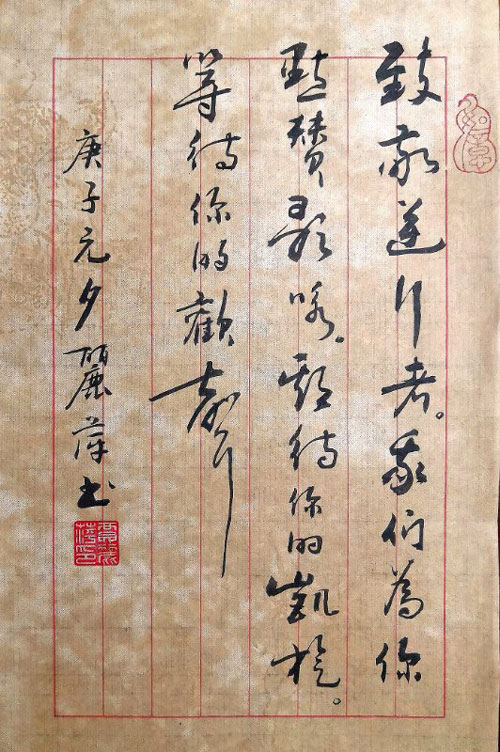 致敬逆行者。我们為你
點贊歌咏。期待你的凱旋。
等待你的歡聲
庚子元夕麗萍书